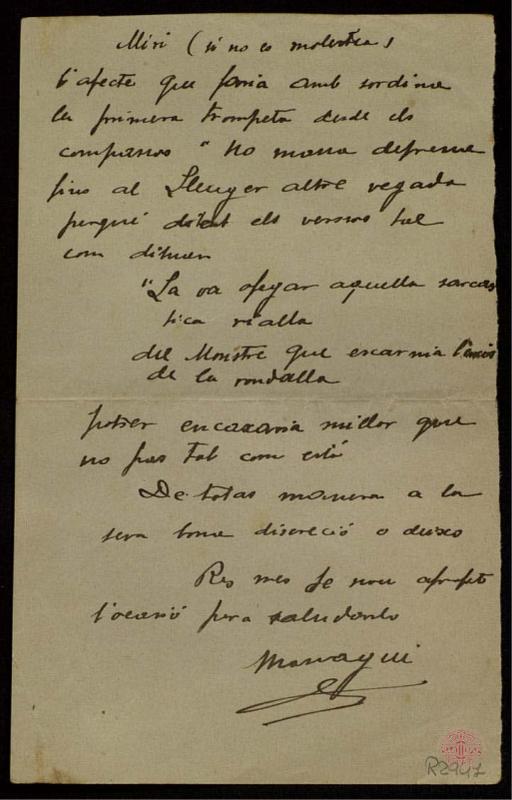 Miri (si no es molestia)
l'afecte que faria amb sordina
la primera trompeta desde els
compassos " No massa depressa
fins al Lleuger altre vegada
perqué els versos tal
com
"La va ofegar aquella sarcas
tica rialla
del Monstre que escarnia
de la rondalla
potser encaxaria millor que
no pas tal com está
De totas manera a la
seva bona discreció o deixo
Res mes de nou aprofito
l'ocasió pera saludarlo
R2947